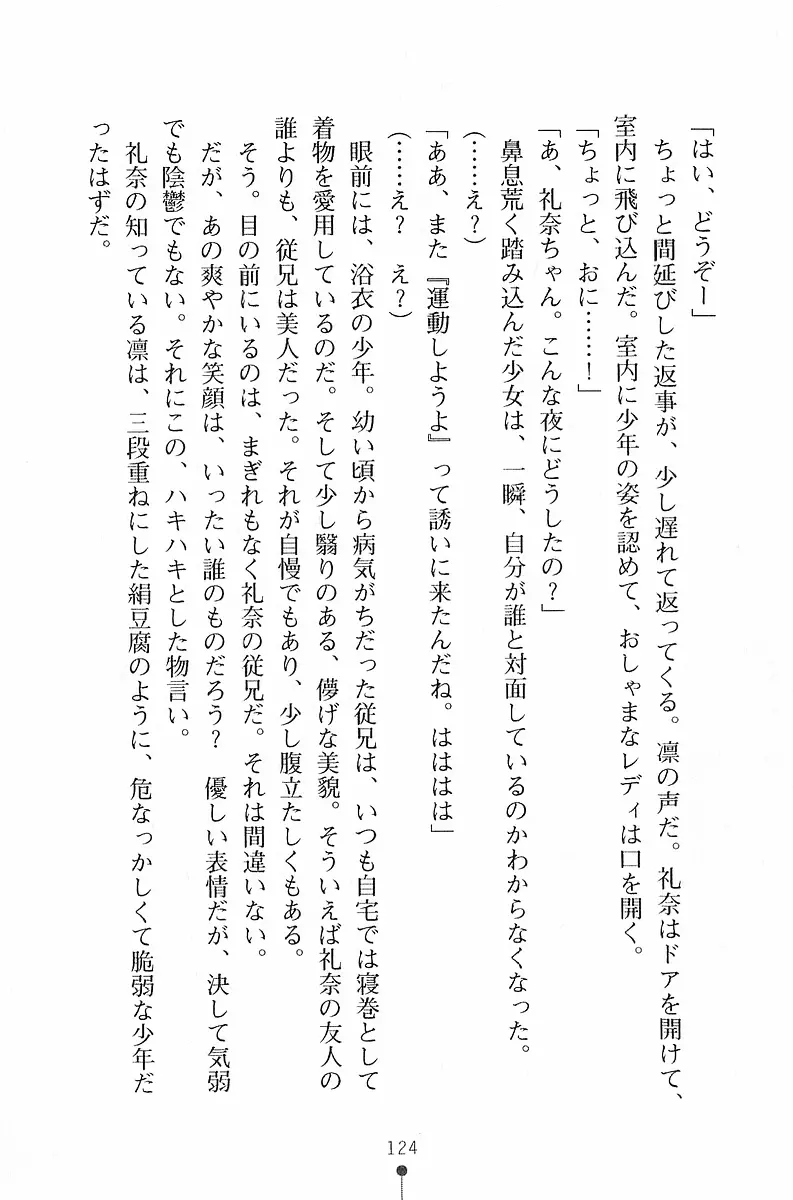 「はい、どうぞー」
　ちょっと間延びした返事が、少し遅れて返ってくる。凛の声だ。礼奈はドアを開けて、
室内に飛び込んだ。室内に少年の姿を認めて、おしゃまなレディは口を開く。
「ちょっと、おに……！」
「あ、礼奈ちゃん。こんな夜にどうしたの？」
　鼻息荒く踏み込んだ少女は、一瞬、自分が誰と対面しているのかわからなくなった。
（……え？）
「ああ、また『運動しようよ』って誘いに来たんだね。はははは」
（……え？　え？）
　眼前には、浴衣の少年。幼い頃から病気がちだった従兄は、いつも自宅では寝巻として
着物を愛用しているのだ。そして少し翳りのある、儚げな美貌。そういえば礼奈の友人の
誰よりも、従兄は美人だった。それが自慢でもあり、少し腹立たしくもある。
　そう。目の前にいるのは、まぎれもなく礼奈の従兄だ。それは間違いない。
　だが、あの爽やかな笑顔は、いったい誰のものだろう？　優しい表情だが、決して気弱
でも陰鬱でもない。それにこの、ハキハキとした物言い。
　礼奈の知っている凛は、三段重ねにした絹豆腐のように、危なっかしくて脆弱な少年だ
ったはずだ。
124